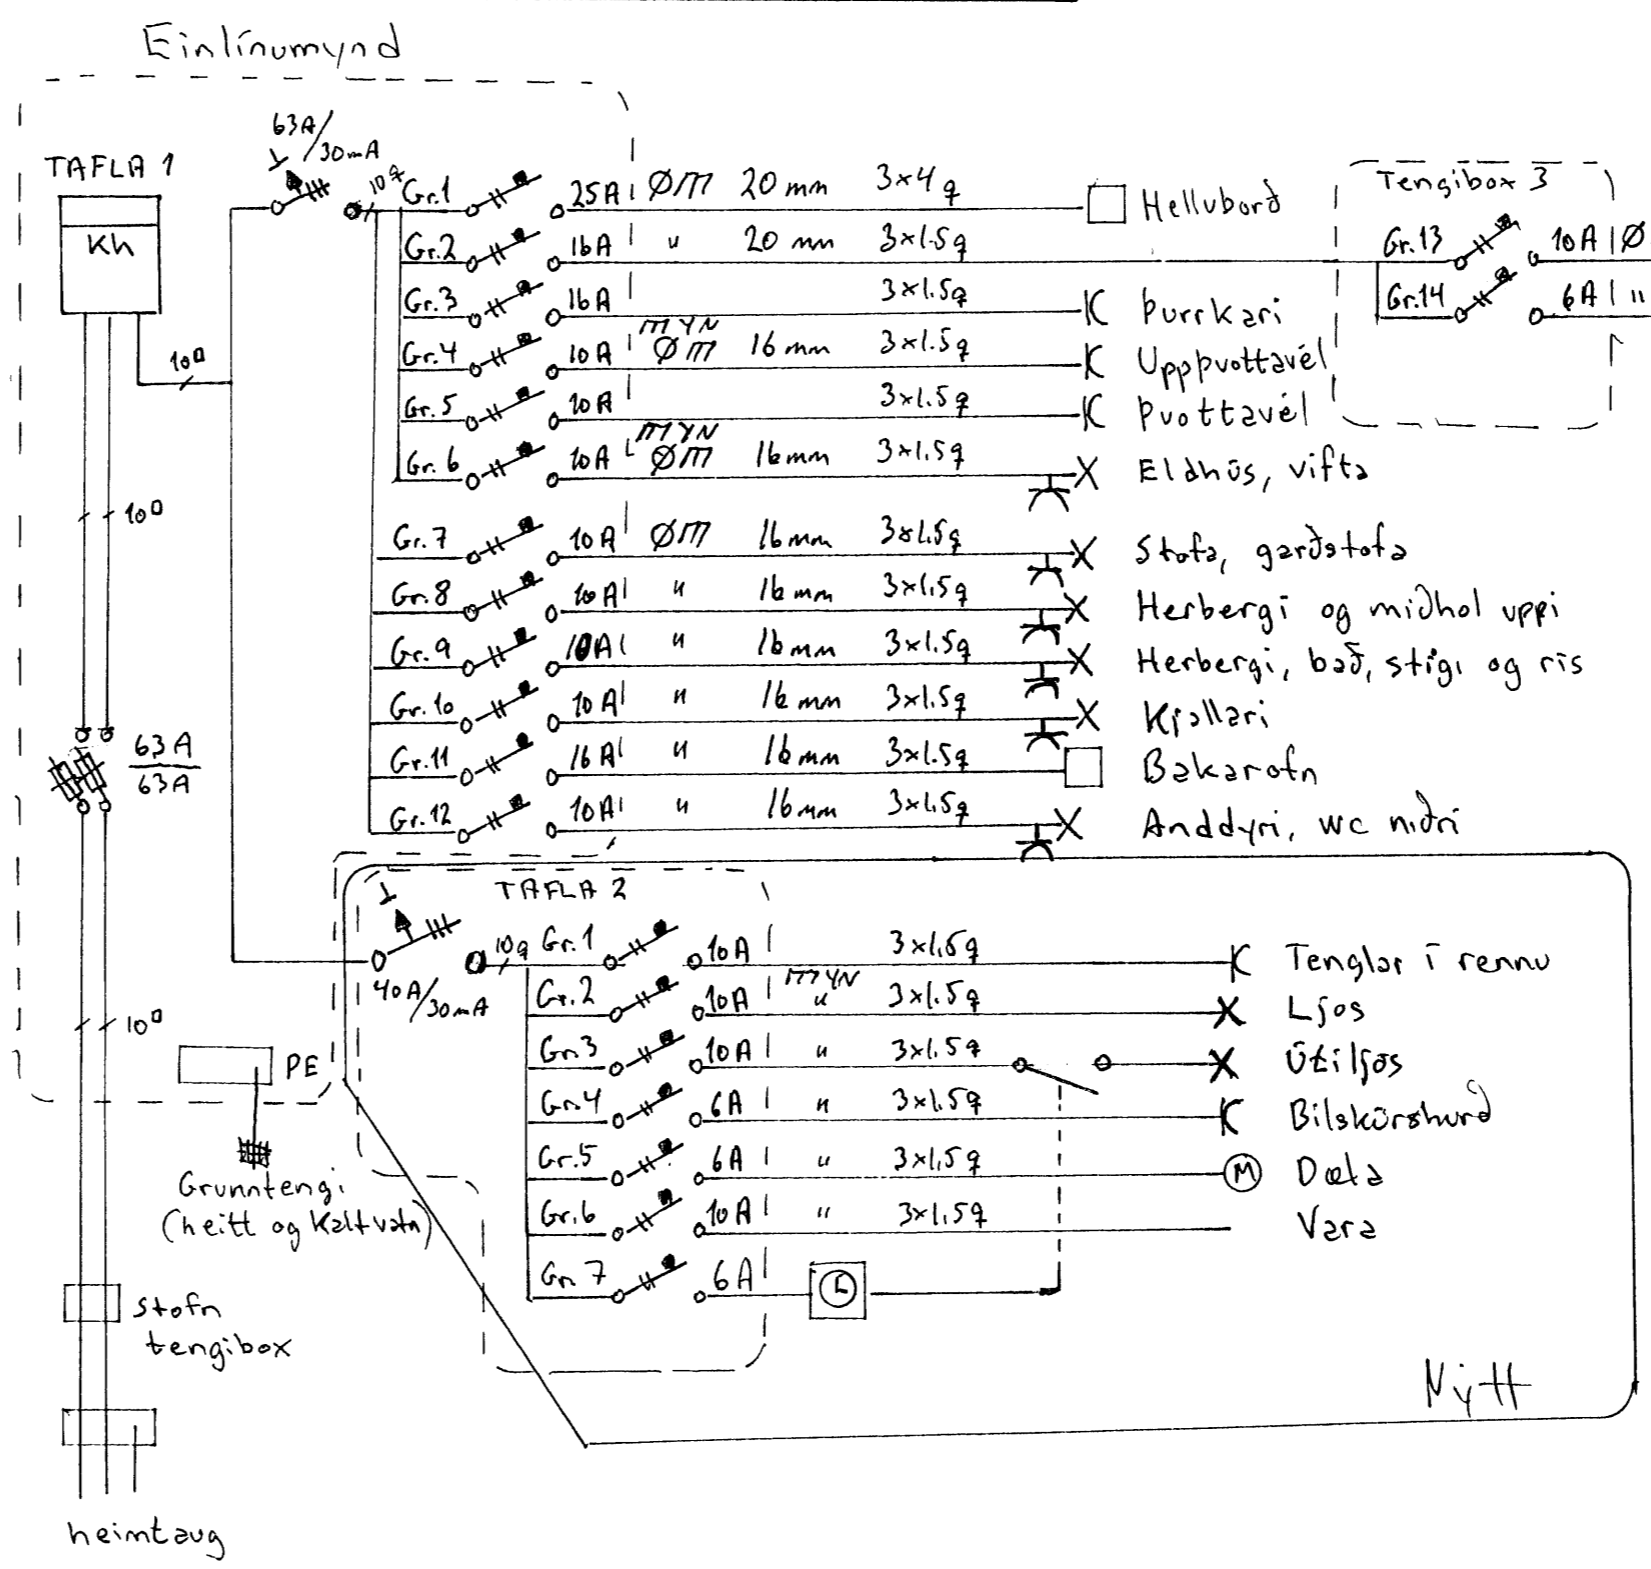 Einlínumynd
TAFLA 1
Kh
63A/30mA
10q
10□
10□
63A
63A
10□
PE
Grunntengi
(heitt og kaltvatn)
Stofn
tengibox
heimtaug
Gr.1 25A ØM 20 mm 3x4q Helluborð
Gr.2 16A " 20 mm 3x1.5q
Gr.3 16A 3x1.5q Þurrkari
Gr.4 10A MYN ØM 16 mm 3x1.5q Uppþvottavél
Gr.5 10A 3x1.5q Þvottavél
Gr.6 10A MYN ØM 16mm 3x1.5q Eldhús, vifta
Gr.7 10A ØM 16mm 3x1.5q Stofa, garðstofa
Gr.8 10A " 16mm 3x1.5q Herbergi og miðhol uppi
Gr.9 10A " 16mm 3x1.5q Herbergi, bað, stigi og ris
Gr.10 10A " 16mm 3x1.5q Kjallari
Gr.11 16A " 16mm 3x1.5q Bakarofn
Gr.12 10A " 16mm 3x1.5q Anddyri, wc niðri
Tengibox 3
Gr.13 10A Ø
Gr.14 6A "
TAFLA 2
40A/30mA
10q
Gr.1 10A 3x1,5q Tenglar í rennu
Gr.2 10A MYN " 3x1.5q Ljós
Gr.3 10A " 3x1,5q Útiljós
Gr.4 6A " 3x1.5q Bílskúrshurð
Gr.5 6A " 3x1,5q M Dæla
Gr.6 10A " 3x1,5q Vara
Gr.7 6A
Nýtt